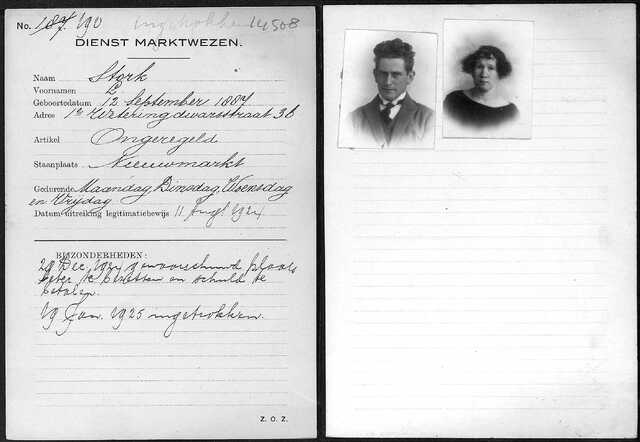 No. 190 ingetrokken 14508
DIENST MARKTWEZEN.
Naam Stork
Voornamen L.
Geboortedatum 12 September 1887
Adres 1e Weteringdwarsstraat 36
Artikel Ongeregeld
Staanplaats Nieuwmarkt
Gedurende Maandag, Dinsdag, Woensdag
en Vrijdag
Datum uitreiking legitimatiebewijs 11 Aug. 1924
BIJZONDERHEDEN:
29 Dec. 1924 gewaarschuwd plaats
beter te bezetten en schuld te
betalen.
19 Jan. 1925 ingetrokken.
Z. O. Z.